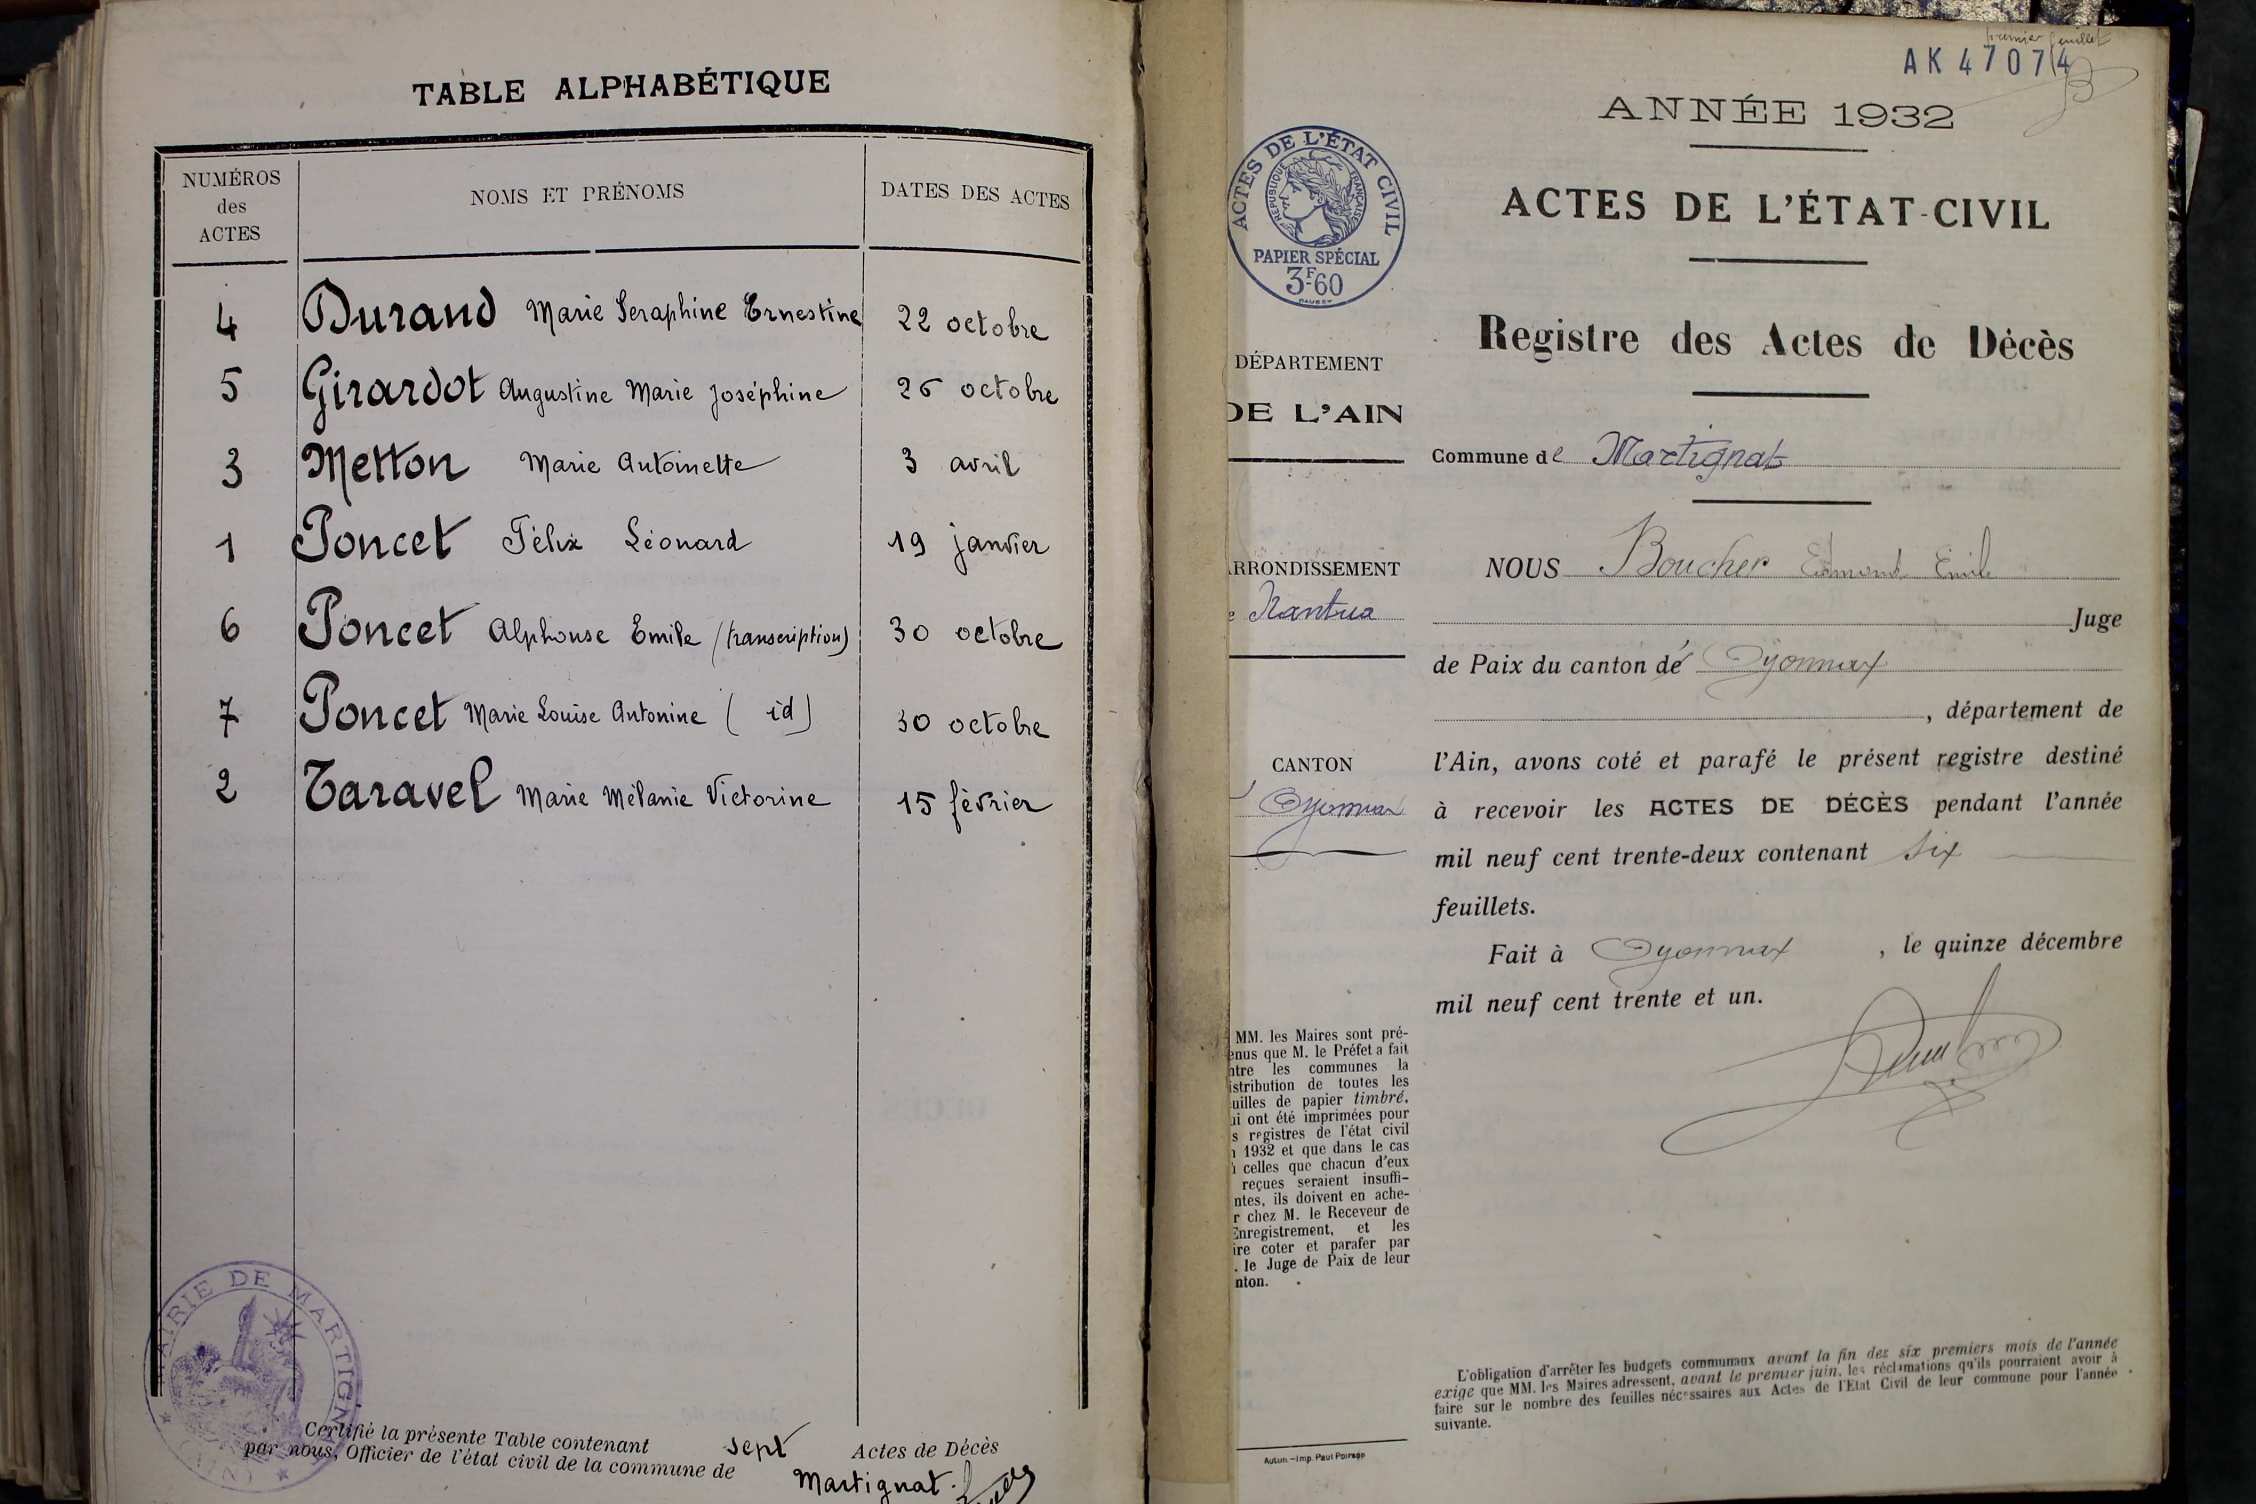 TABLE ALPHABÉTIQUE
NUMÉROS
des
ACTES
NOMS ET PRÉNOMS
DATES DES ACTES
4 Durand Marie Seraphine Ernestine 22 octobre
5 Girardot Augustine Marie Joséphine 26 octobre
3 Metton Marie Antoinette 3 avril
1 Poncet Félix Léonard 19 janvier
6 Poncet Alphonse Emile (transcription) 30 octobre
7 Poncet Marie Louise Antonine ( id ) 30 octobre
2 Taravel Marie Mélanie Victorine 15 février
MAIRIE DE MARTIGNAT
(AIN)
Certifié la présente Table contenant sept Actes de Décès
par nous, Officier de l'état civil de la commune de
Martignat.
premier feuillet
AK 47074
ANNÉE 1932
ACTES DE L'ÉTAT CIVIL
RÉPUBLIQUE FRANÇAISE
PAPIER SPÉCIAL
3F-60
DÉPARTEMENT
DE L'AIN
ARRONDISSEMENT
e Nantua
CANTON
Oyonnax
MM. les Maires sont pré-
enus que M. le Préfet a fait
ntre les communes la
istribution de toutes les
uilles de papier timbré,
ui ont été imprimées pour
s registres de l'état civil
n 1932 et que dans le cas
ù celles que chacun d'eux
reçues seraient insuffi-
ntes, ils doivent en ache-
r chez M. le Receveur de
Enregistrement, et les
ire coter et parafer par
. le Juge de Paix de leur
nton.
Autun. - Imp. Paul Poirson
ACTES DE L'ÉTAT-CIVIL
Registre des Actes de Décès
Commune de Martignat
NOUS Boucher Edmond Emile
Juge
de Paix du canton d'Oyonnax
, département de
l'Ain, avons coté et parafé le présent registre destiné
à recevoir les ACTES DE DÉCÈS pendant l'année
mil neuf cent trente-deux contenant six
feuillets.
Fait à Oyonnax , le quinze décembre
mil neuf cent trente et un.
L'obligation d'arrêter les budgets communaux avant la fin des six premiers mois de l'année
exige que MM. les Maires adressent, avant le premier juin, les réclamations qu'ils pourraient avoir à
faire sur le nombre des feuilles nécessaires aux Actes de l'Etat Civil de leur commune pour l'année
suivante.